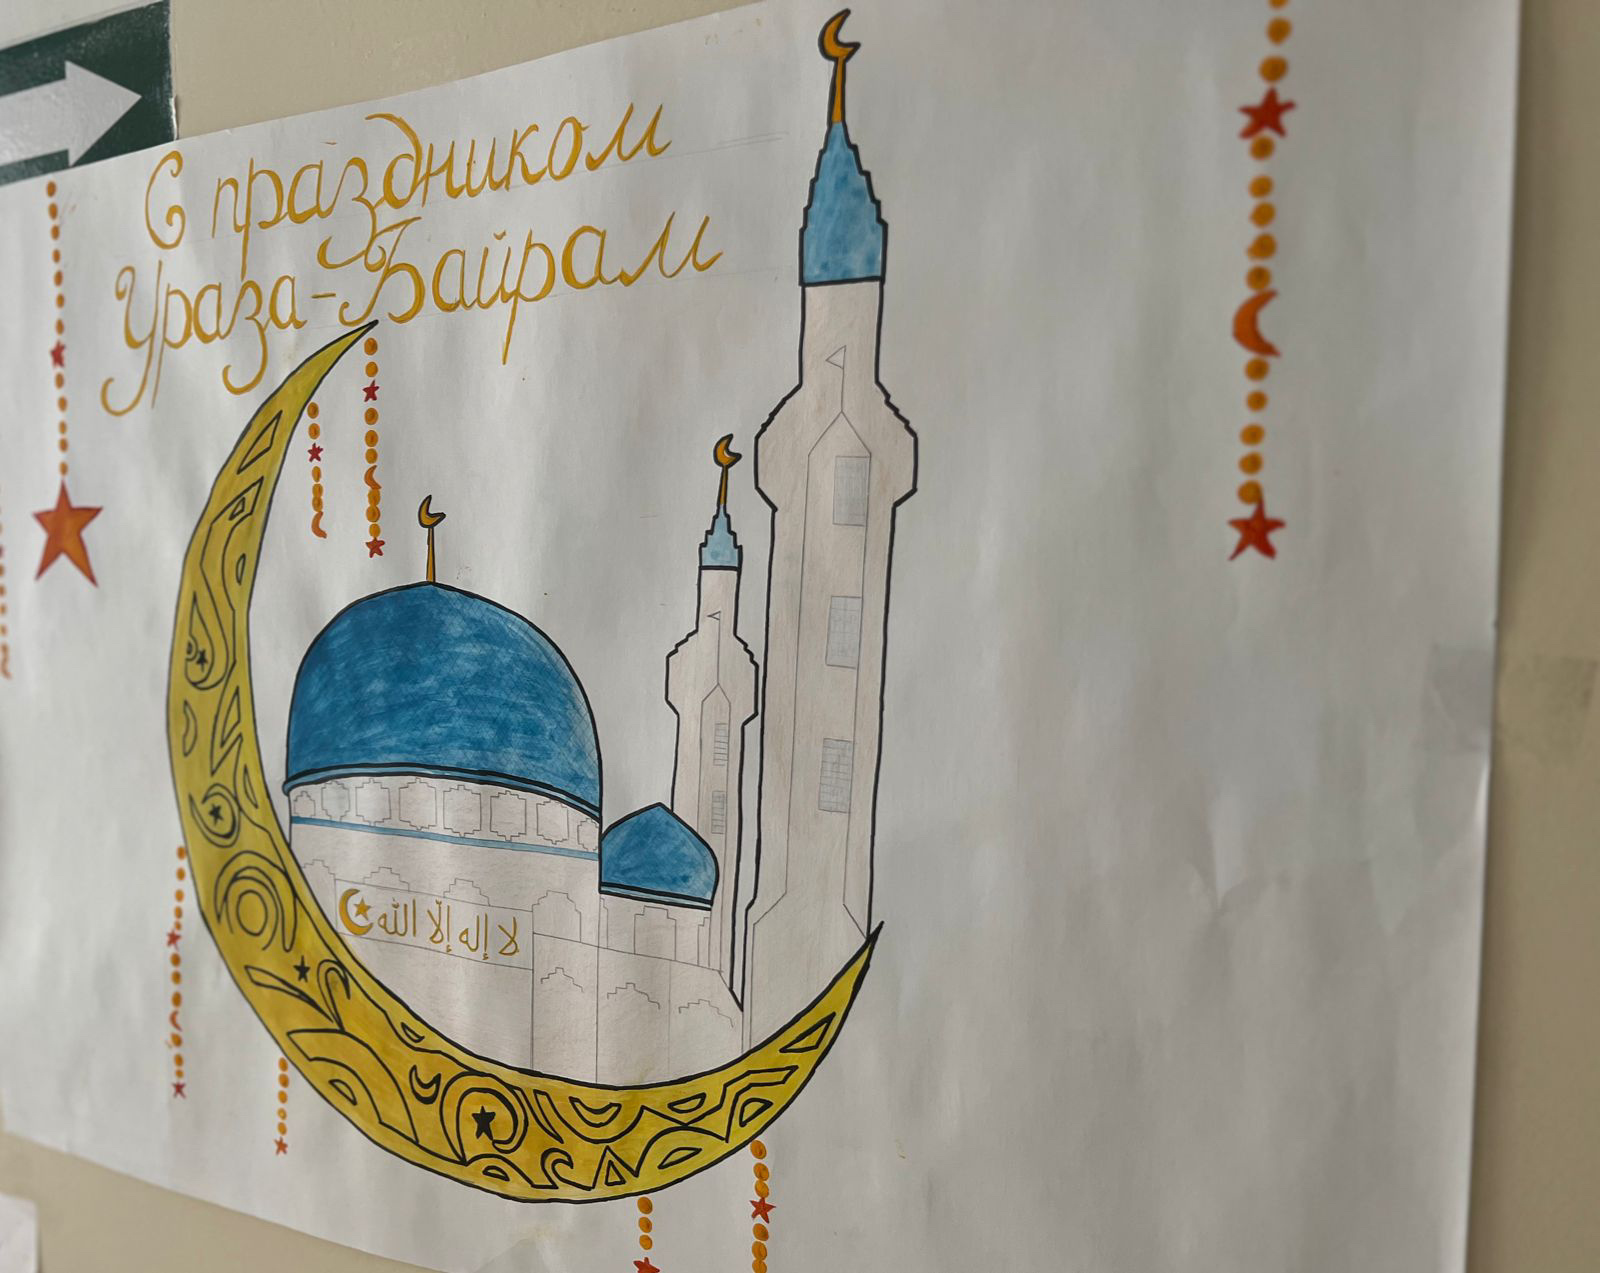 С праздником
Ураза-Байрам
لا إله إلّا الله